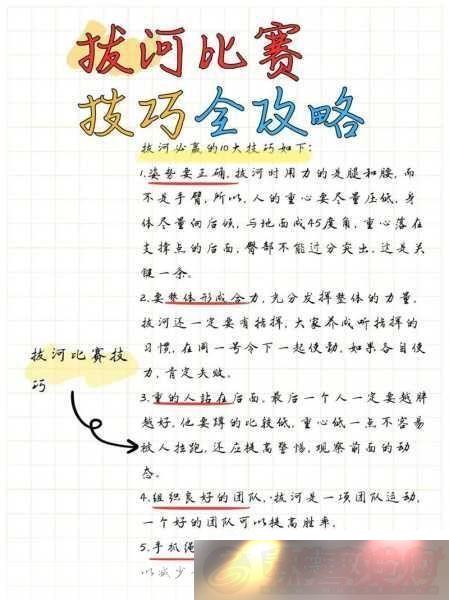 拔河比赛
技巧全攻略
拔河必赢的10大技巧如下:
1.姿势要正确,拔河时用力的是腿和腰,而
不是手臂,所以,人的重心要尽量压低,身
体尽量向后倾,与地面成45度角,重心落在
支撑点的后面,臀部不能过分突出,这是关
键一条。
2.要整体形成合力,充分发挥整体的力量,
拔河还一定要有指挥,大家养成听指挥的
习惯,在同一号令下一起使劲,如果各自使
力,肯定失败。
拔河比赛技
巧
3.重的人站在后面,最后一个人一定要越胖
越好,他要蹲的比较低,重心低一点不容易
被人拉跑,还应提高警惕,观察前面的动
态。
4.组织良好的团队,拔河是一项团队运动,
一个好的团队可以提高胜率。
5.手抓绳
以减少